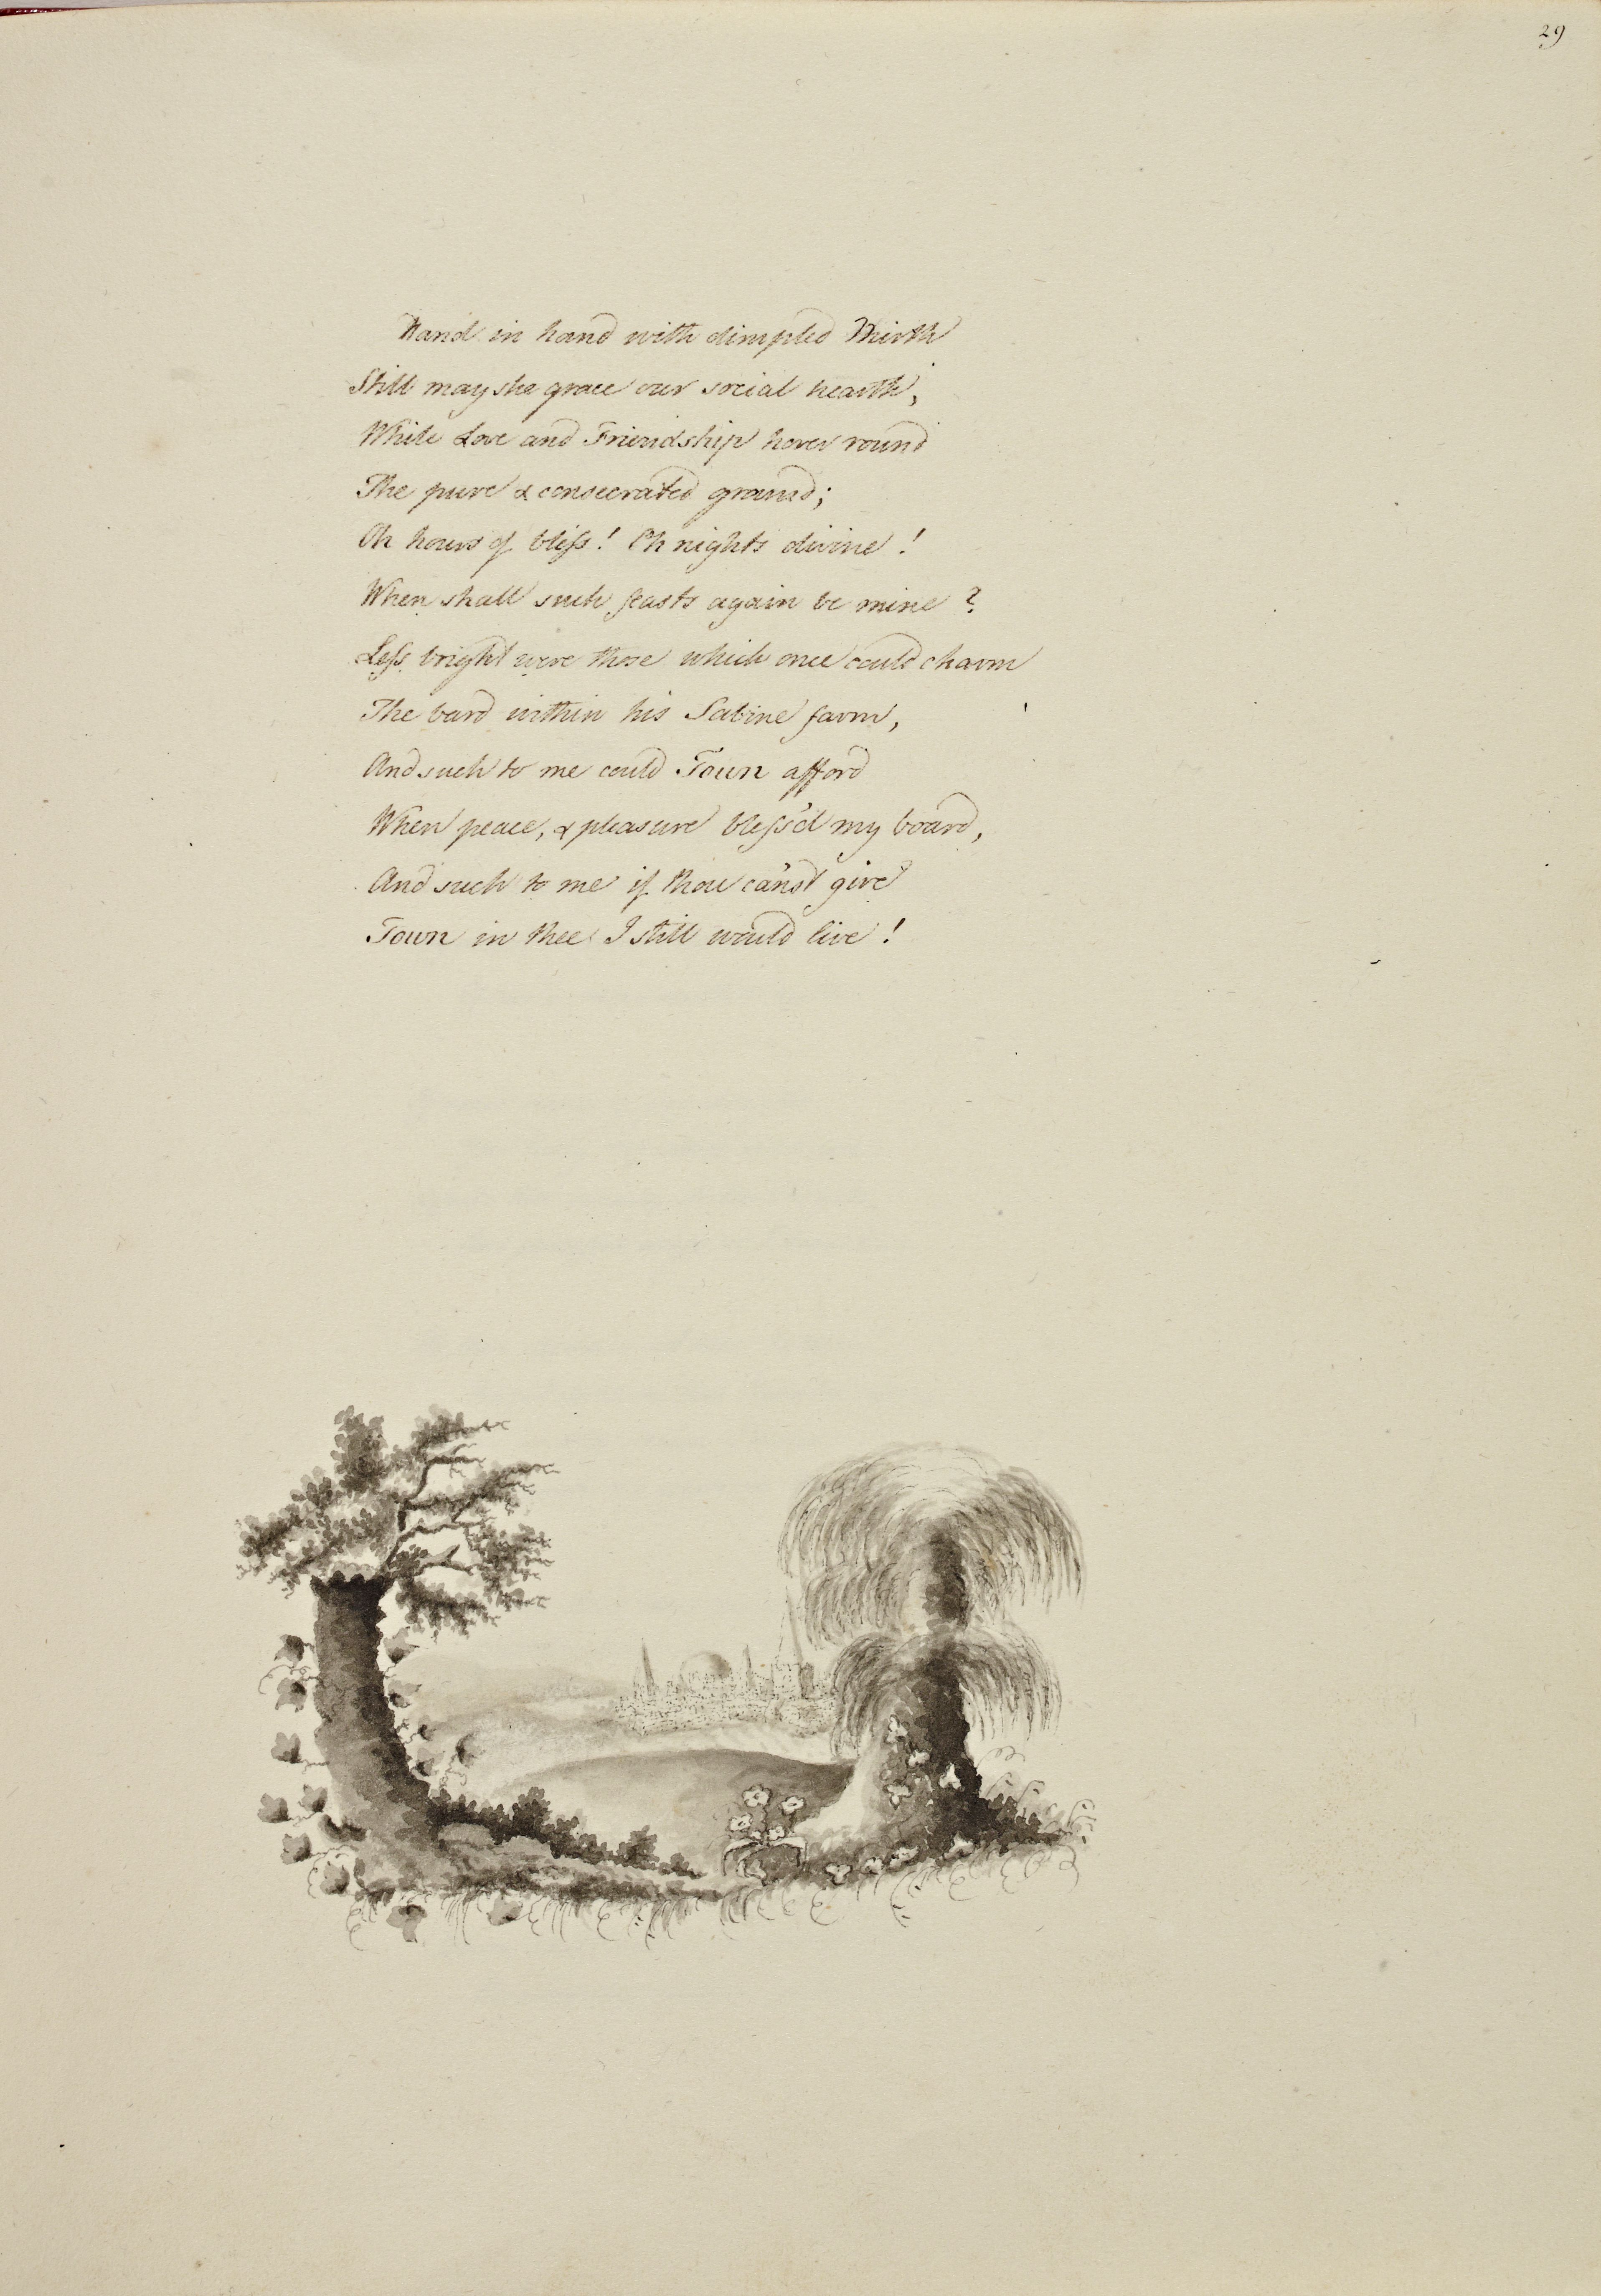 29
Hand in hand with dimpled Mirth
Still may she grace our social hearth,
While Love and Friendship hover round
The pure & consecrated ground;
Oh hours of bliſs! Oh nights divine!
When shall such feasts again be mine?
Leſs bright were those which once could charm
The bard within his Sabine farm,
And such to me could Town afford
When peace, & pleasure bleſs'd my board,
And such to me if thou can'st give
Town in thee I still would live!